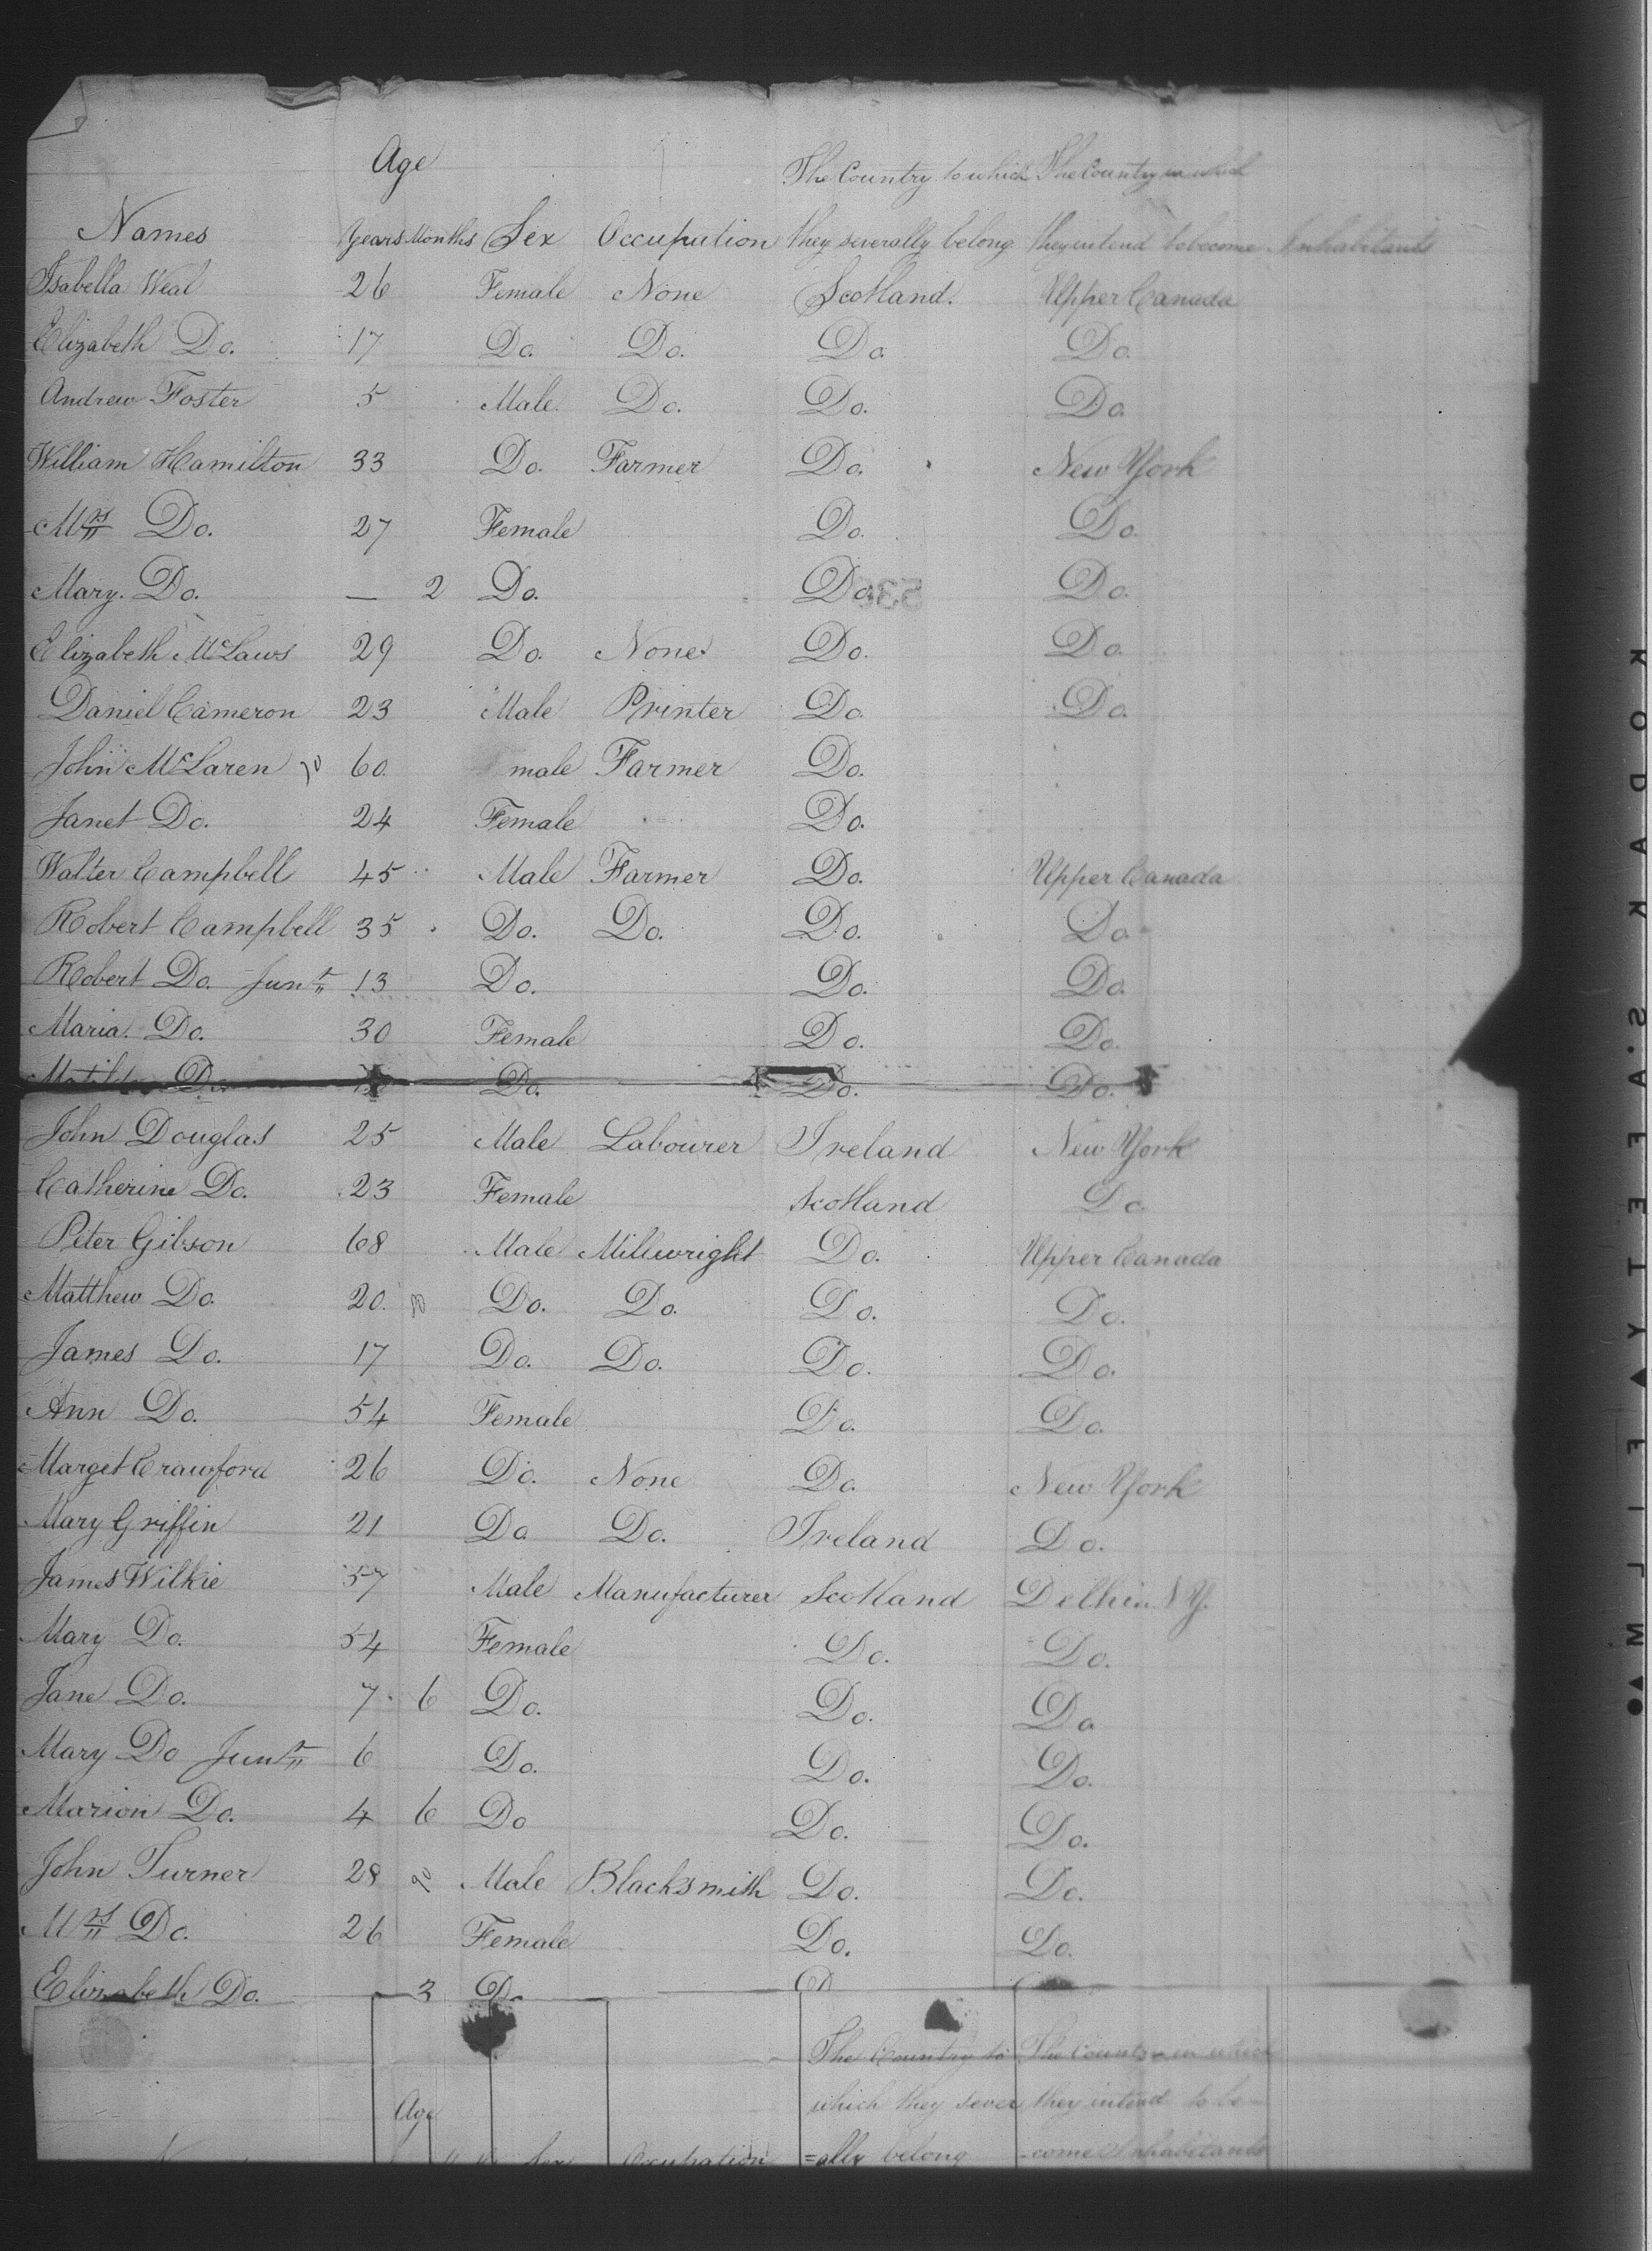 Age The Country to which The Country in which
Names Years Months Sex Occupation they severally belong they intend to become Inhabitants
Isabella Weal 26 Female None Scotland. Upper Canada
Elizabeth Do. 17 Do. Do. Do. Do.
Andrew Foster 5 Male Do. Do. Do.
William Hamilton 33 Do. Farmer Do. New York
Mrs Do. 27 Female Do. Do.
Mary. Do. — 2 Do. Do. Do.
Elizabeth McLaws 29 Do. None Do. Do.
Daniel Cameron 23 Male Printer Do. Do.
John McLaren 60 male Farmer Do.
Janet Do. 24 Female Do.
Walter Campbell 45 Male Farmer Do. Upper Canada
Robert Campbell 35 Do. Do. Do. Do.
Robert Do. Junr 13 Do. Do. Do.
Maria. Do. 30 Female Do. Do.
Matilda Do. Do. Do. Do.
John Douglas 25 Male Labourer Ireland New York
Catherine Do. 23 Female Scotland Do.
Peter Gibson 68 Male Millwright Do. Upper Canada
Matthew Do. 20 Do. Do. Do. Do.
James Do. 17 Do. Do. Do. Do.
Ann Do. 54 Female Do. Do.
Marget Crawford 26 Do. None Do. New York
Mary Griffin 21 Do. Do. Ireland Do.
James Wilkie 57 Male Manufacturer Scotland Delhi N.Y.
Mary Do. 54 Female Do. Do.
Jane Do. 7 6 Do. Do. Do.
Mary Do Junr 6 Do. Do. Do.
Marion Do. 4 6 Do Do. Do.
John Turner 28 Male Blacksmith Do. Do.
Mrs Do. 26 Female Do. Do.
Elizabeth Do. — 3 Do
The Country to The Country in which
Age which they sever they intend to be
Sex Occupation =ally belong -come Inhabitants
KODAK S'AFETY FILM